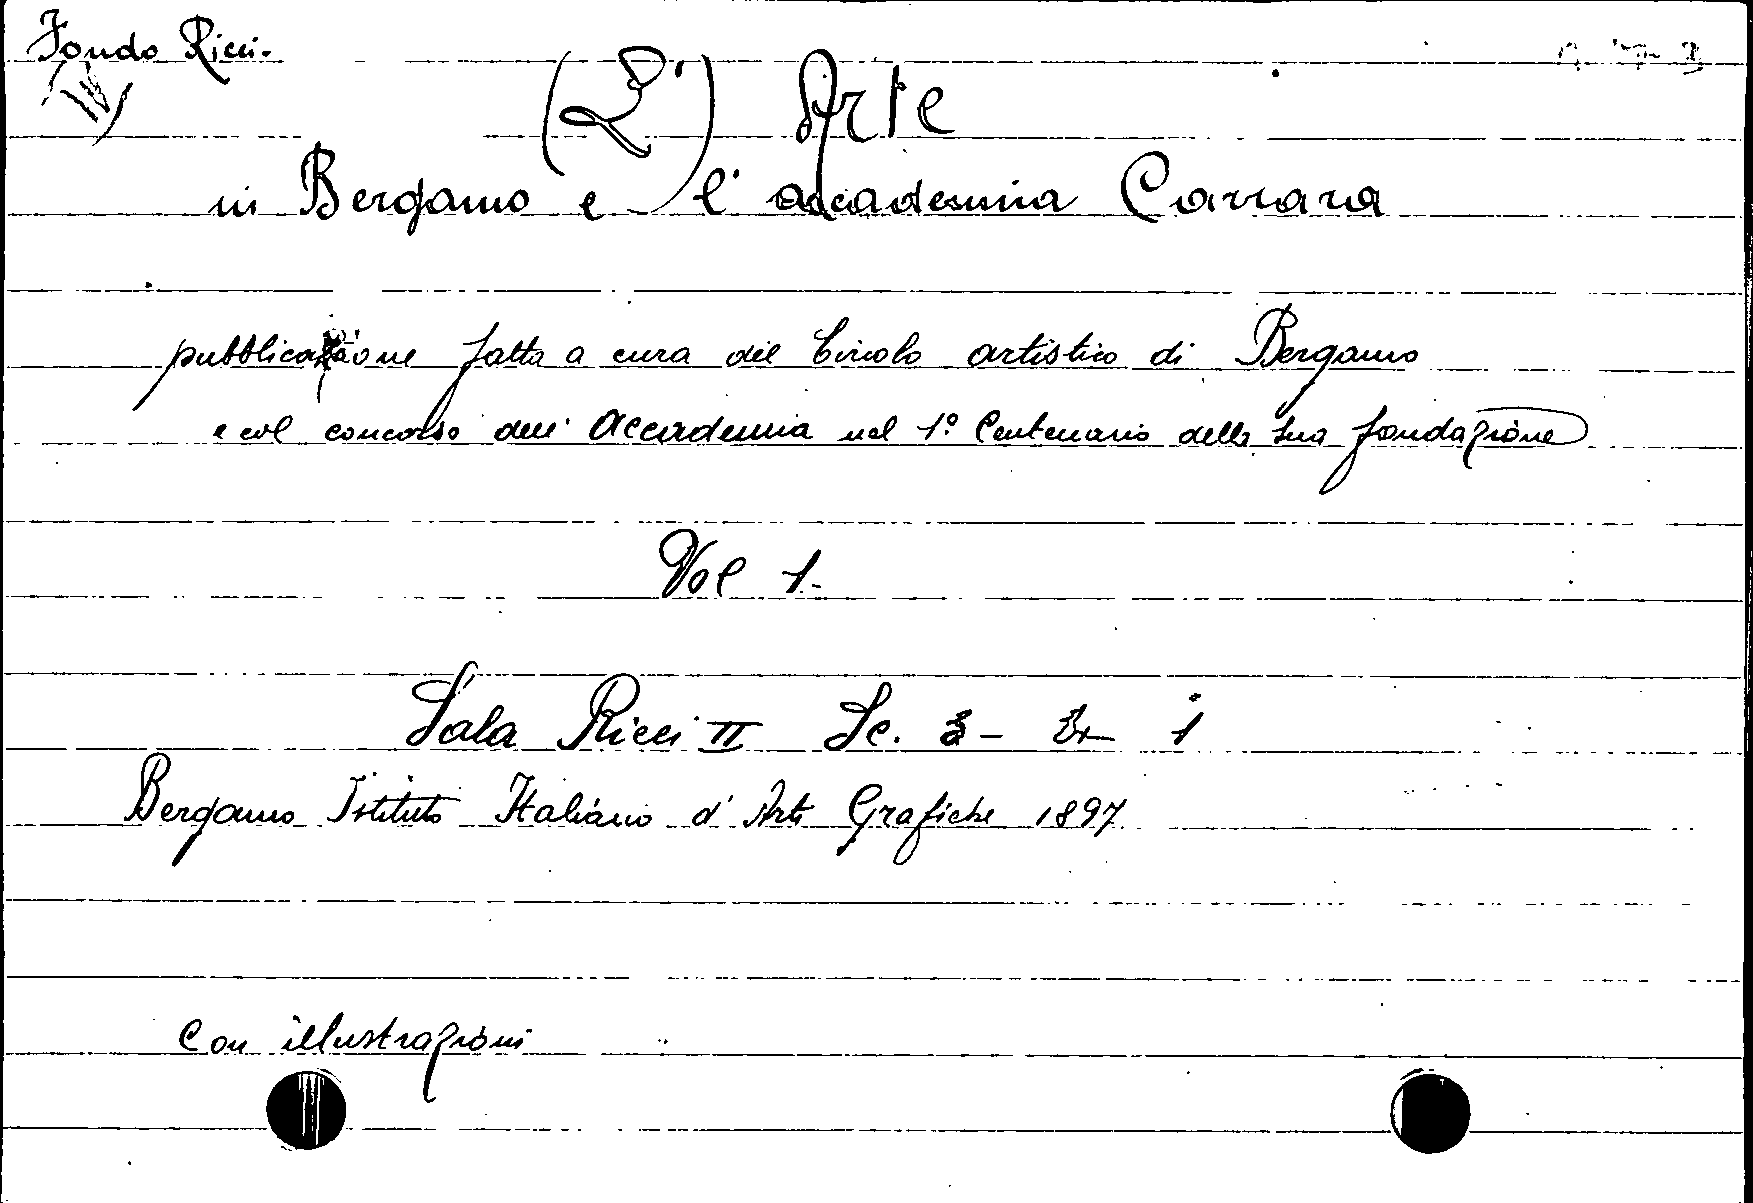 Fondo Ricci.
(L') Arte
in Bergamo e l'accademia Carrara
pubblicazione fatta a cura del Circolo artistico di Bergamo
e col concorso dell'Accademia nel 1º Centenario della sua fondazione
Vol 1.
Sala Ricci II Sc. 3 - 1
Bergamo Istituto Italiano d'Arti Grafiche 1897
Con illustrazioni